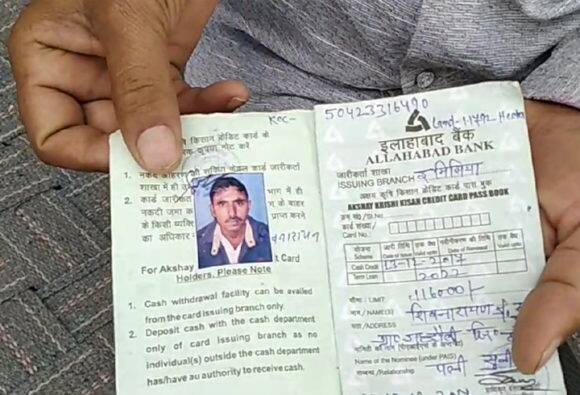 KCC-
किसान क्रेडिट कार्ड के
कृपया नोट करें
1.
शाखा में ही
2. कार्ड जारीकर्ता
भाग में ही
नकदी जमा क
ग के बाहर
के किसी व्यक्ति
प्राप्त करने
का अधिकार
For Akshay
t Card
Holders, Please Note
1. Cash withdrawal facility can be availed
from the card issuing branch only.
2. Deposit cash with the cash department
only of card issuing branch as no
individual(s) outside the cash department
has/have au authority to receive cash.
50423316490
Land-1.1792 Hect
इलाहाबाद बैंक
ALLAHABAD BANK
जारीकर्ता शाखा
ISSUING BRANCH इमिलिया
अक्षय कृषि किसान क्रेडिट कार्ड पास बुक
AKSHAY KRISHI KISAN CREDIT CARD PASS BOOK
क्रम सं०/Sl.No.
कार्ड संख्या/
Card No.:
योजना जारी तिथि तक वैध नवीनीकरण की तिथि तक वैध
Scheme Date of Issue Valid upto Date of Renewal Valid upto
Cash Credit 13-12-2017
Term Loan 2022
सीमा / LIMIT 116000/-
नाम / NAME(S) शिवनारायण
पता / ADDRESS
Name of the Nominee (under PAIS)
सम्बन्ध /Relationship पत्नी